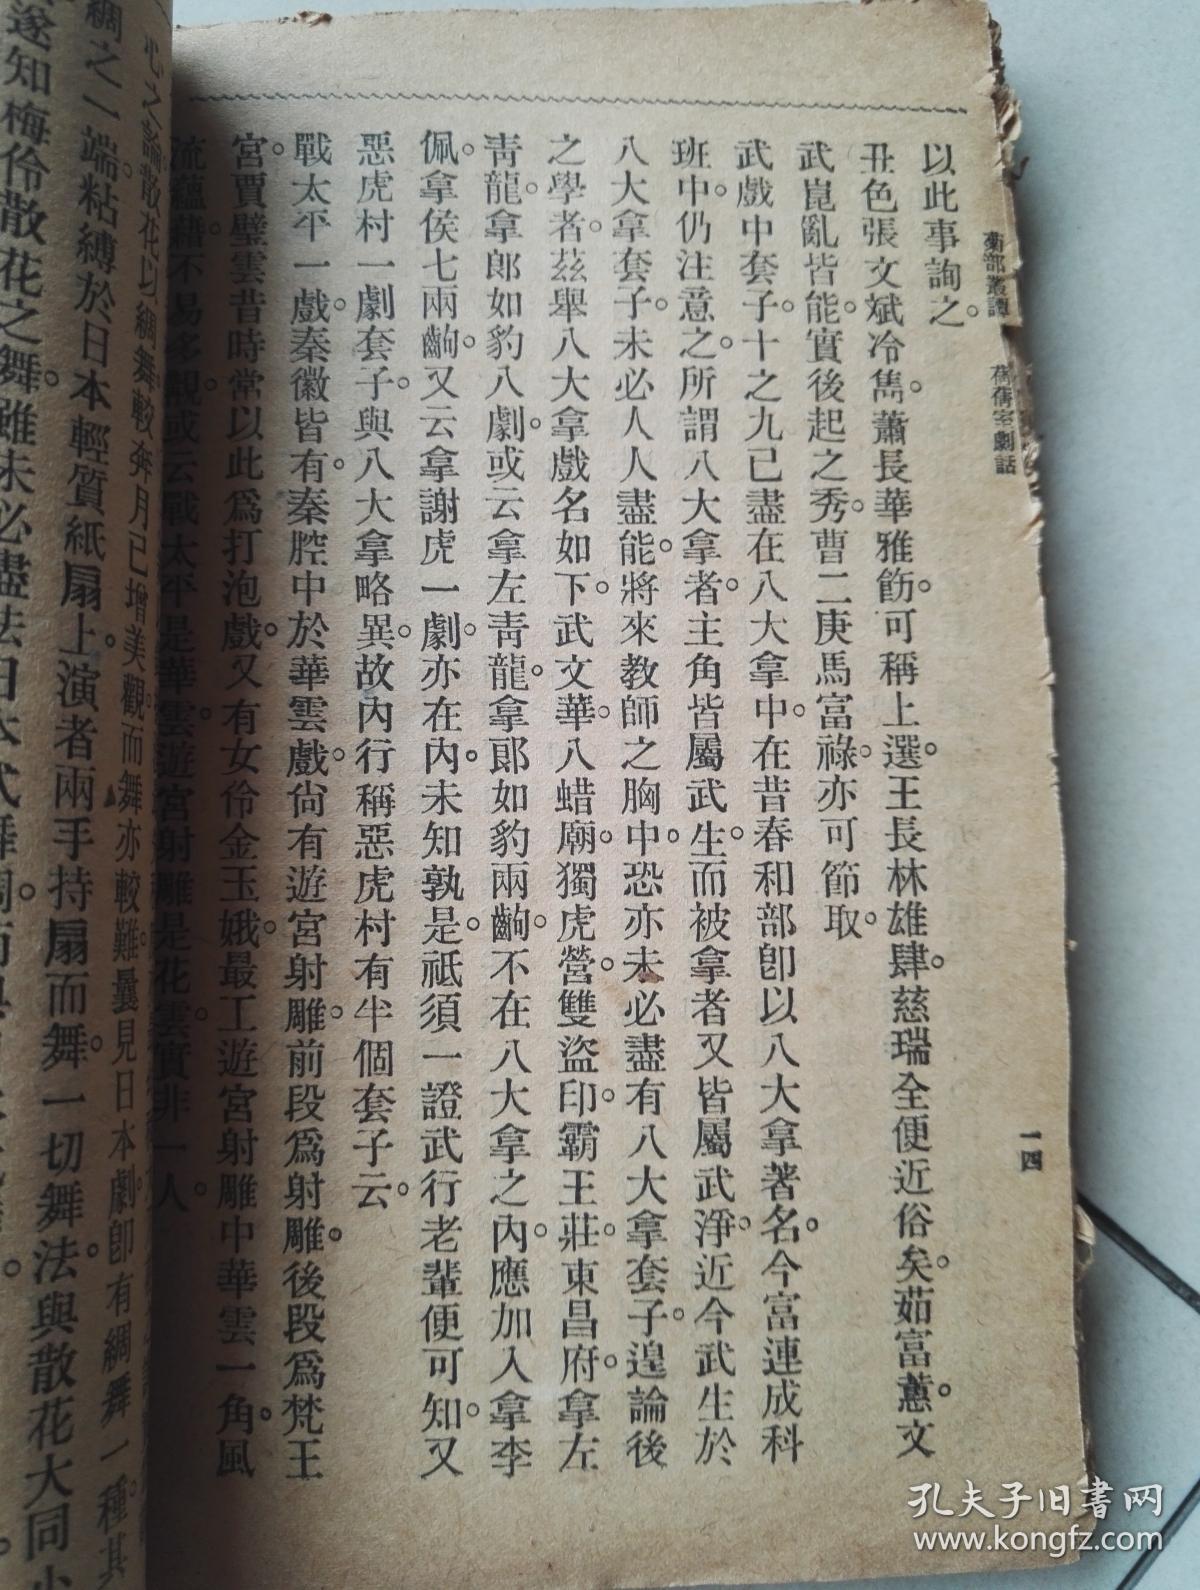 以此事詢之。
丑色張文斌冷雋。蕭長華雅飭。可稱上選。王長林雄肆。慈瑞全便近俗矣。茹富蕙文
武崑亂皆能。實後起之秀。曹二庚馬富祿。亦可節取。
武戲中套子。十之九已盡在八大拿中。在昔春和部卽以八大拿著名。今富連成科
班中。仍注意之。所謂八大拿者。主角皆屬武生。而被拿者又皆屬武淨。近今武生於
八大拿套子。未必人人盡能。將來教師之胸中。恐亦未必盡有八大拿套子。遑論後
之學者。茲舉八大拿戲名如下。武文華。八蜡廟。獨虎營。雙盜印。霸王莊。東昌府。拿左
靑龍。拿郎如豹八劇。或云拿左靑龍。拿郎如豹兩齣。不在八大拿之內。應加入拿李
佩。拿侯七兩齣。又云拿謝虎一劇。亦在內。未知孰是。祇須一證武行老輩便可知。又
惡虎村一劇套子。與八大拿略異。故內行稱惡虎村有半個套子云。
戰太平一戲。秦徽皆有。秦腔中於華雲戲。尙有遊宮射雕。前段爲射雕。後段爲梵王
宮。賈璧雲昔時常以此爲打泡戲。又有女伶金玉娥。最工遊宮射雕中華雲一角。風
流蘊藉。不易多覯。或云戰太平是華雲。遊宮射雕是花雲。實非一人。
心之論。散花以綢舞。較奔月已增美觀。而舞亦較難。曩見日本劇卽有綢舞一種。其
綢之一端。粘縛於日本輕質紙扇上。演者兩手持扇而舞。一切舞法。與散花大同小
遂知梅伶散花之舞。雖未必盡法日本式舞
菊部叢譚
舊儔室劇話
一四
孔夫子旧书网
www.kongfz.com